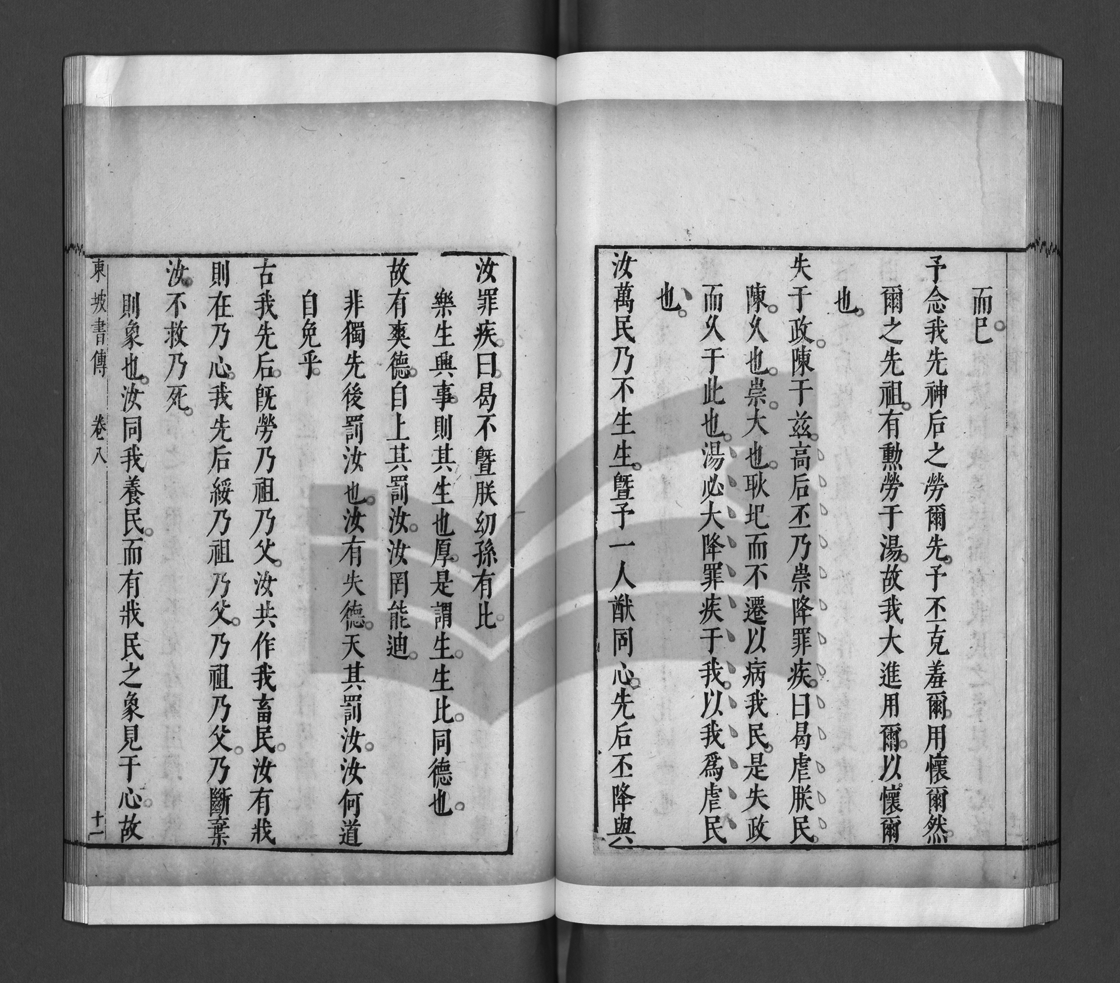 而已。
予念我先神后之勞爾先。予丕克羞爾。用懷爾然。
爾之先祖。有勲勞于湯。故我大進用爾。以懷爾
也。
失于政。陳于兹。高后丕乃崇降罪疾。曰曷虐朕民。
陳。久也。崇。大也。耿圯而不遷。以病我民。是失政
而久于此也。湯必大降罪疾于我。以我爲虐民
也。
汝萬民乃不生生。曁予一人猷同心。先后丕降與
汝罪疾。曰。曷不曁朕幼孫有比。
樂生興事。則其生也厚。是謂生生。比。同德也。
故有爽德。自上其罰汝。汝罔能迪。
非獨先後罰汝也。汝有失德。天其罰汝。汝何道
自免乎。
古我先后。旣勞乃祖乃父。汝共作我畜民。汝有戕
則在乃心。我先后綏乃祖乃父。乃祖乃父。乃斷棄
汝。不救乃死。
則象也。汝同我養民。而有戕民之象見于心。故
東坡書傳 卷八 十一